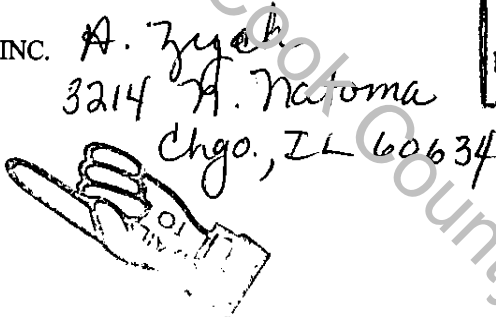 INC. A. Zych
3214 N. Natoma
Chgo., IL 60634
MAIL TO
Cook County